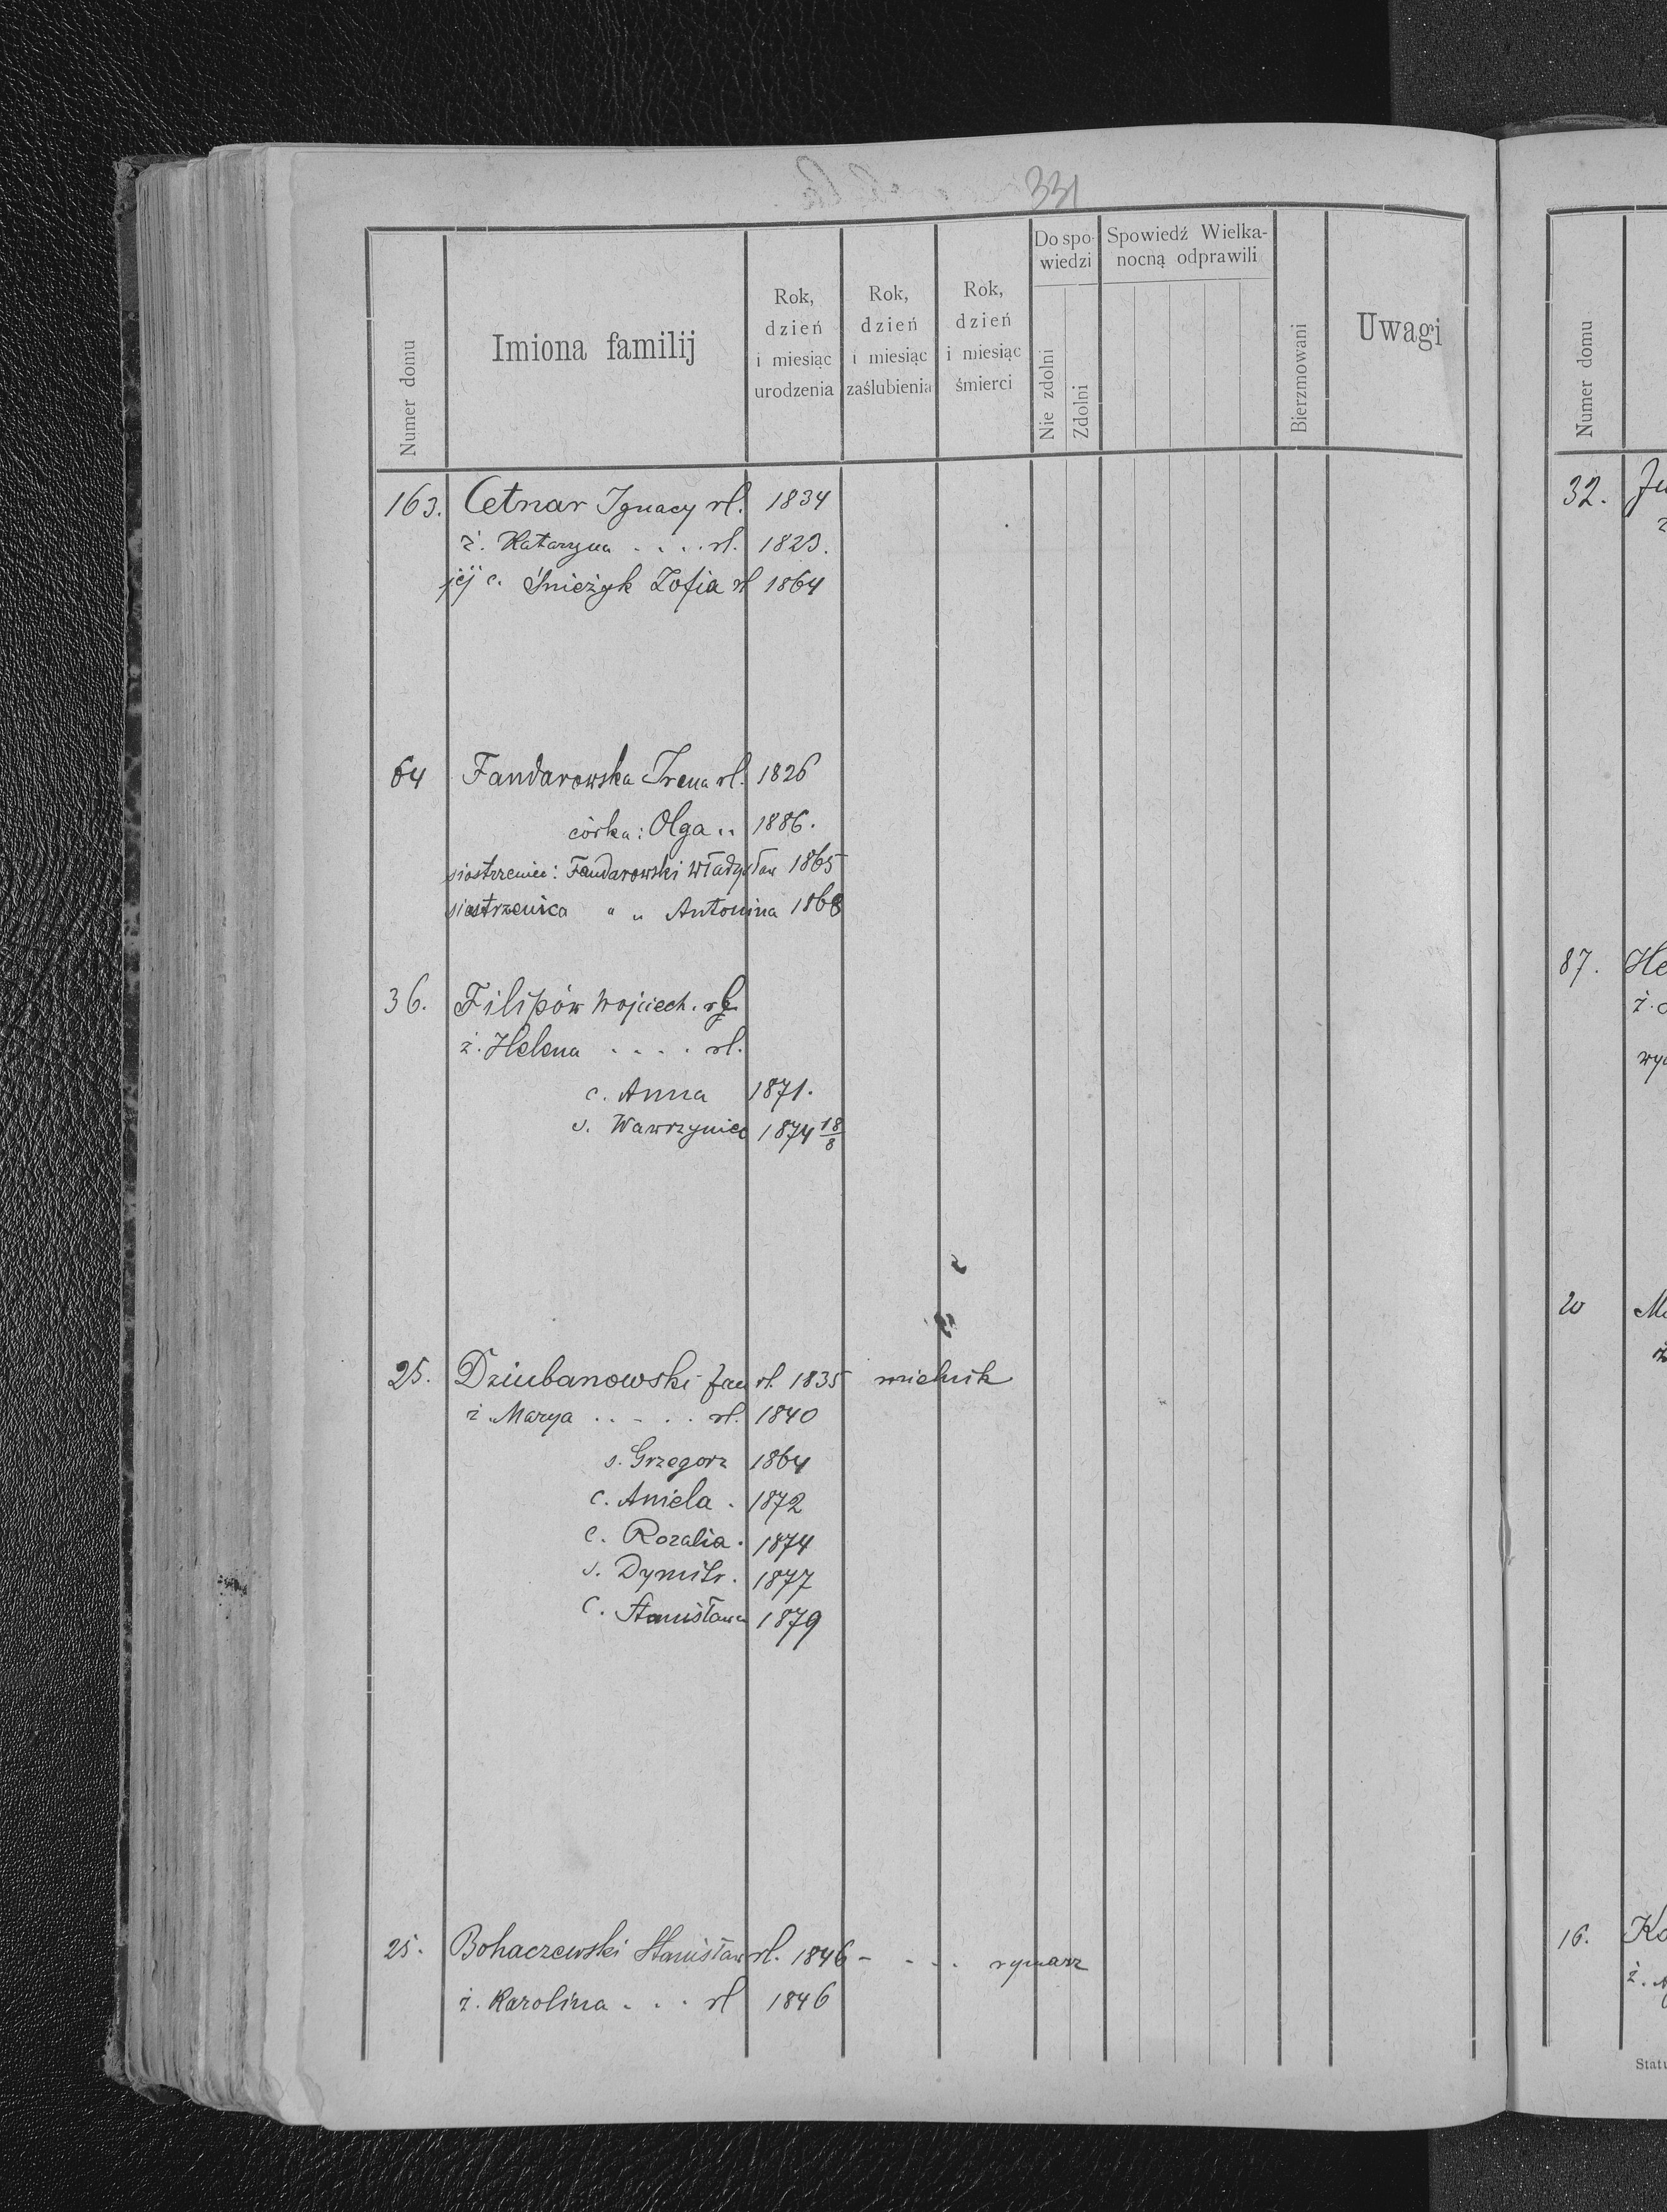 331
Numer domu
Imiona familij
Rok,
dzień
i miesiąc
urodzenia
Rok,
dzień
i miesiąc
zaślubienia
Rok,
dzień
i miesiąc
śmierci
Do spo-
wiedzi
Nie zdolni
Zdolni
Spowiedź Wielka-
nocną odprawili
Bierzmowani
Uwagi
163. Cetnar Ignacy rł. 1834
ż. Katarzyna . . . . rł. 1823.
jej c. Śnieżyk Zofia rł 1864
64 Fandarowska Irena rł. 1826
córka: Olga „ 1886.
siostrzeniec: Fandarowski Władysław 1865
siostrzenica " „ Antonina 1868
36. Filipów Wojciech.
ż. Helena . . . . rł.
c. Anna 1871.
s. Wawrzyniec 1874 18/8
25. Dziubanowski Jan rł. 1835 mielnik
ż. Marya . . - . . rł. 1840
s. Grzegorz 1864
c. Aniela . 1872
c. Rozalia . 1874
s. Dymitr . 1877
c. Stanisława 1879
25. Bohaczewski Stanisław rł. 1846 - - . . rymarz
ż. Karolina . . . rł 1846
Numer domu
32. Ju
87. He
ż.
wyc
20 Ma
ż
16. Ko
ż.
Statu